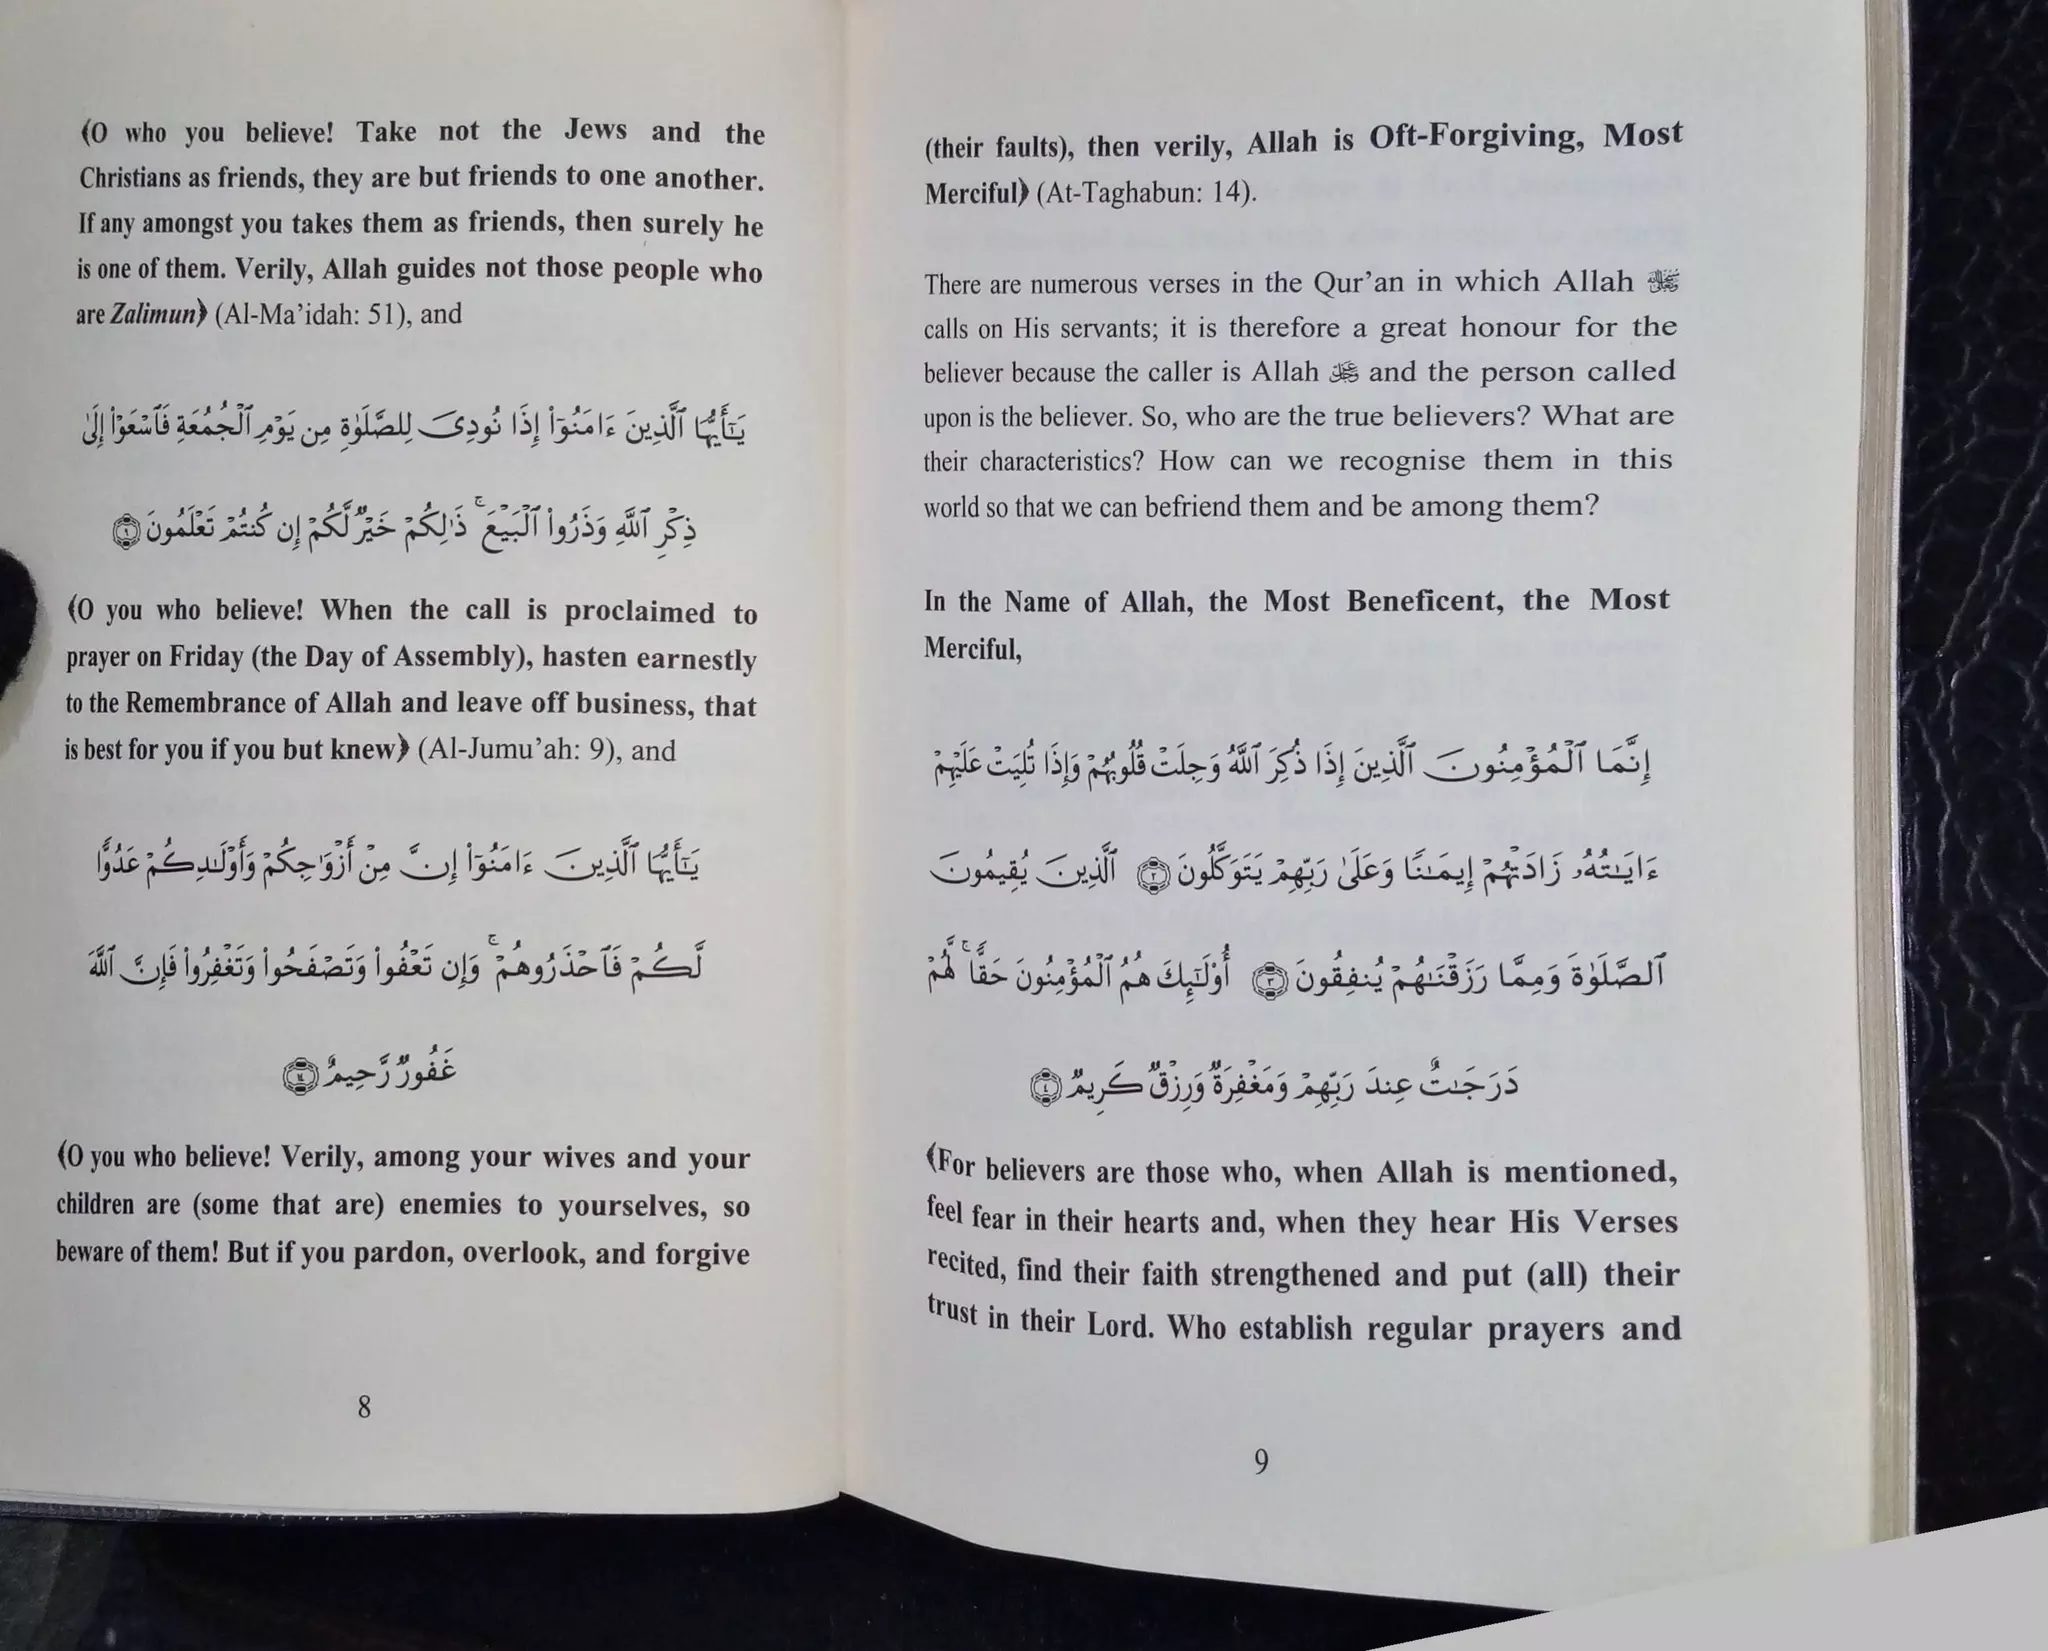 ﴾O who you believe! Take not the Jews and the
Christians as friends, they are but friends to one another.
If any amongst you takes them as friends, then surely he
is one of them. Verily, Allah guides not those people who
are Zalimun﴿ (Al-Ma’idah: 51), and
يَـٰٓأَيُّهَا ٱلَّذِينَ ءَامَنُوٓا۟ إِذَا نُودِىَ لِلصَّلَوٰةِ مِن يَوْمِ ٱلْجُمُعَةِ فَٱسْعَوْا۟ إِلَىٰ
ذِكْرِ ٱللَّهِ وَذَرُوا۟ ٱلْبَيْعَ ۚ ذَٰلِكُمْ خَيْرٌ لَّكُمْ إِن كُنتُمْ تَعْلَمُونَ ۝٩
﴾O you who believe! When the call is proclaimed to
prayer on Friday (the Day of Assembly), hasten earnestly
to the Remembrance of Allah and leave off business, that
is best for you if you but knew﴿ (Al-Jumu’ah: 9), and
يَـٰٓأَيُّهَا ٱلَّذِينَ ءَامَنُوٓا۟ إِنَّ مِنْ أَزْوَٰجِكُمْ وَأَوْلَـٰدِكُمْ عَدُوًّا
لَّكُمْ فَٱحْذَرُوهُمْ ۚ وَإِن تَعْفُوا۟ وَتَصْفَحُوا۟ وَتَغْفِرُوا۟ فَإِنَّ ٱللَّهَ
غَفُورٌ رَّحِيمٌ ۝١٤
﴾O you who believe! Verily, among your wives and your
children are (some that are) enemies to yourselves, so
beware of them! But if you pardon, overlook, and forgive
8
(their faults), then verily, Allah is Oft-Forgiving, Most
Merciful﴿ (At-Taghabun: 14).
There are numerous verses in the Qur’an in which Allah
calls on His servants; it is therefore a great honour for the
believer because the caller is Allah and the person called
upon is the believer. So, who are the true believers? What are
their characteristics? How can we recognise them in this
world so that we can befriend them and be among them?
In the Name of Allah, the Most Beneficent, the Most
Merciful,
إِنَّمَا ٱلْمُؤْمِنُونَ ٱلَّذِينَ إِذَا ذُكِرَ ٱللَّهُ وَجِلَتْ قُلُوبُهُمْ وَإِذَا تُلِيَتْ عَلَيْهِمْ
ءَايَـٰتُهُۥ زَادَتْهُمْ إِيمَـٰنًا وَعَلَىٰ رَبِّهِمْ يَتَوَكَّلُونَ ۝٢ ٱلَّذِينَ يُقِيمُونَ
ٱلصَّلَوٰةَ وَمِمَّا رَزَقْنَـٰهُمْ يُنفِقُونَ ۝٣ أُو۟لَـٰٓئِكَ هُمُ ٱلْمُؤْمِنُونَ حَقًّا ۚ لَّهُمْ
دَرَجَـٰتٌ عِندَ رَبِّهِمْ وَمَغْفِرَةٌ وَرِزْقٌ كَرِيمٌ ۝٤
﴾For believers are those who, when Allah is mentioned,
feel fear in their hearts and, when they hear His Verses
recited, find their faith strengthened and put (all) their
trust in their Lord. Who establish regular prayers and
9